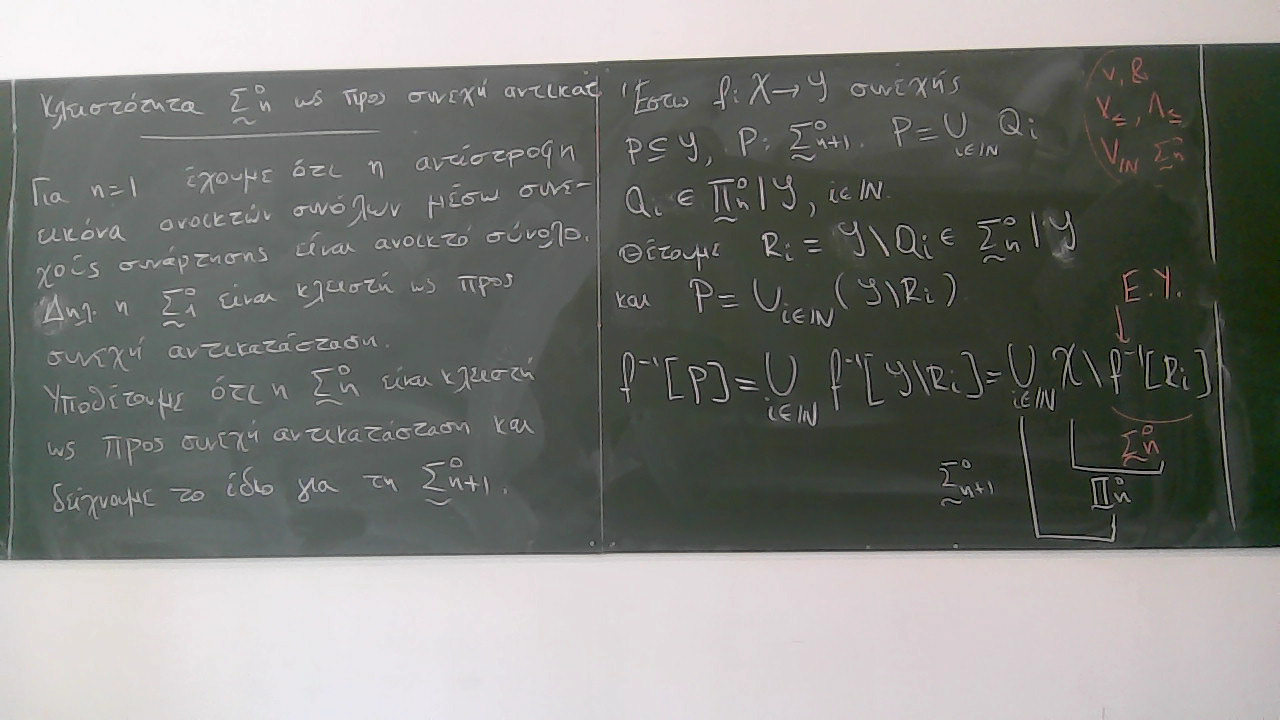 Κλειστότητα Σ⁰ₙ ως προς συνεχή αντικατ
Για n=1 έχουμε ότι η αντίστροφη
εικόνα ανοικτών συνόλων μέσω συνε-
χούς συνάρτησης είναι ανοικτό σύνολο.
Δηλ. η Σ⁰₁ είναι κλειστή ως προς
συνεχή αντικατάσταση.
Υποθέτουμε ότι η Σ⁰ₙ είναι κλειστή
ως προς συνεχή αντικατάσταση και
δείχνουμε το ίδιο για τη Σ⁰ₙ₊₁.
Έστω f: X → Y συνεχής
P ⊆ Y, P: Σ⁰ₙ₊₁. P = ∪_{i∈ℕ} Qi
Qi ∈ Π⁰ₙ|Y, i∈ℕ.
Θέτουμε Ri = Y\Qi ∈ Σ⁰ₙ|Y
και P = ∪_{i∈ℕ} (Y\Ri)
f⁻¹[P] = ∪_{i∈ℕ} f⁻¹[Y\Ri] = ∪_{i∈ℕ} X\f⁻¹[Ri]
Σ⁰ₙ
Π⁰ₙ
Σ⁰ₙ₊₁
Ε.Υ.
∨, &
∃≤, ∀≤
∃ℕ Σ⁰ₙ